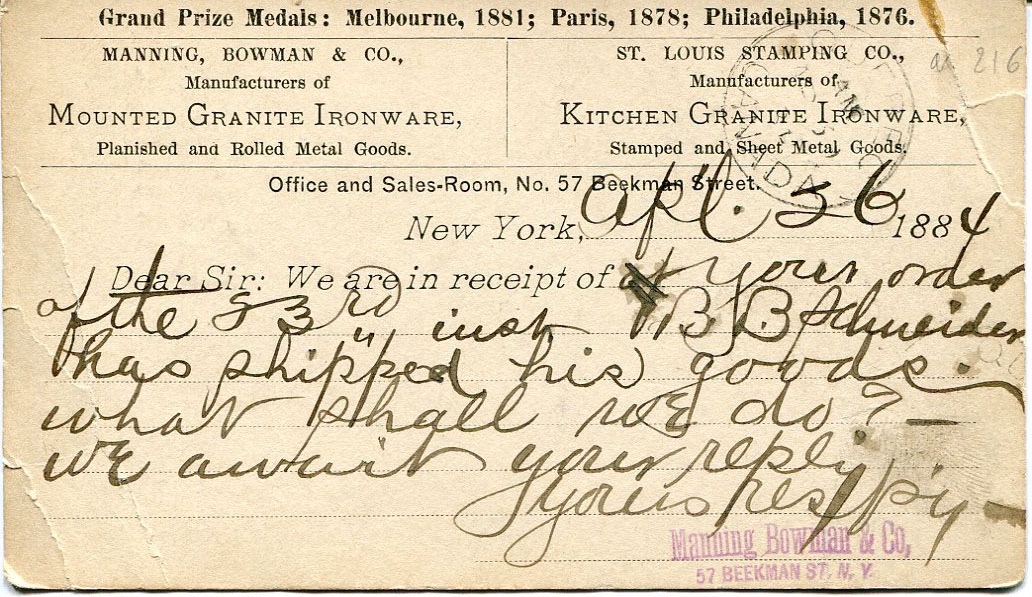 Grand Prize Medals: Melbourne, 1881; Paris, 1878; Philadelphia, 1876.
MANNING, BOWMAN & CO.,
Manufacturers of
MOUNTED GRANITE IRONWARE,
Planished and Rolled Metal Goods.
ST. LOUIS STAMPING CO.,
Manufacturers of
KITCHEN GRANITE IRONWARE,
Stamped and Sheet Metal Goods.
216
CANADA
Office and Sales-Room, No. 57 Beekman Street.
New York, Apl. 26 1884
Dear Sir: We are in receipt of your order
of the 23rd inst B B Schneider
has shipped his goods.
what shall we do? —
we await your reply.
yours resp'py —
Manning Bowman & Co,
57 BEEKMAN ST. N. Y.